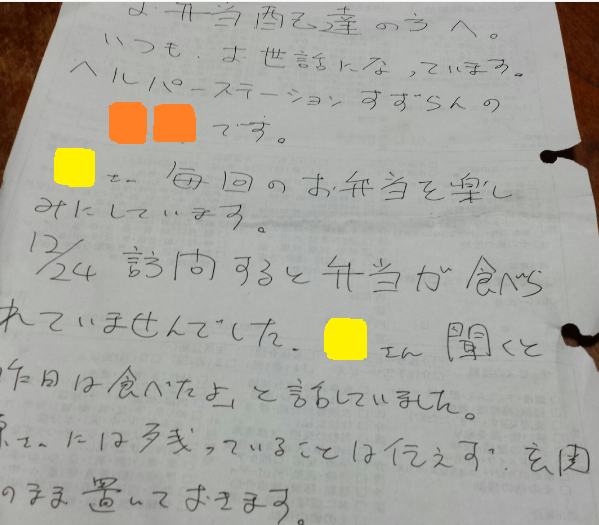 お弁当配達の方へ。
いつもお世話になっています。
ヘルパーステーションすずらんの
です。
さん 毎回のお弁当を楽し
みにしています。
12/24 訪問すると弁当が食べら
れていませんでした。 さん 聞くと
昨日は食べたよ」と話していました。
さんには残っていることは伝えず、玄関
のまま置いておきます。